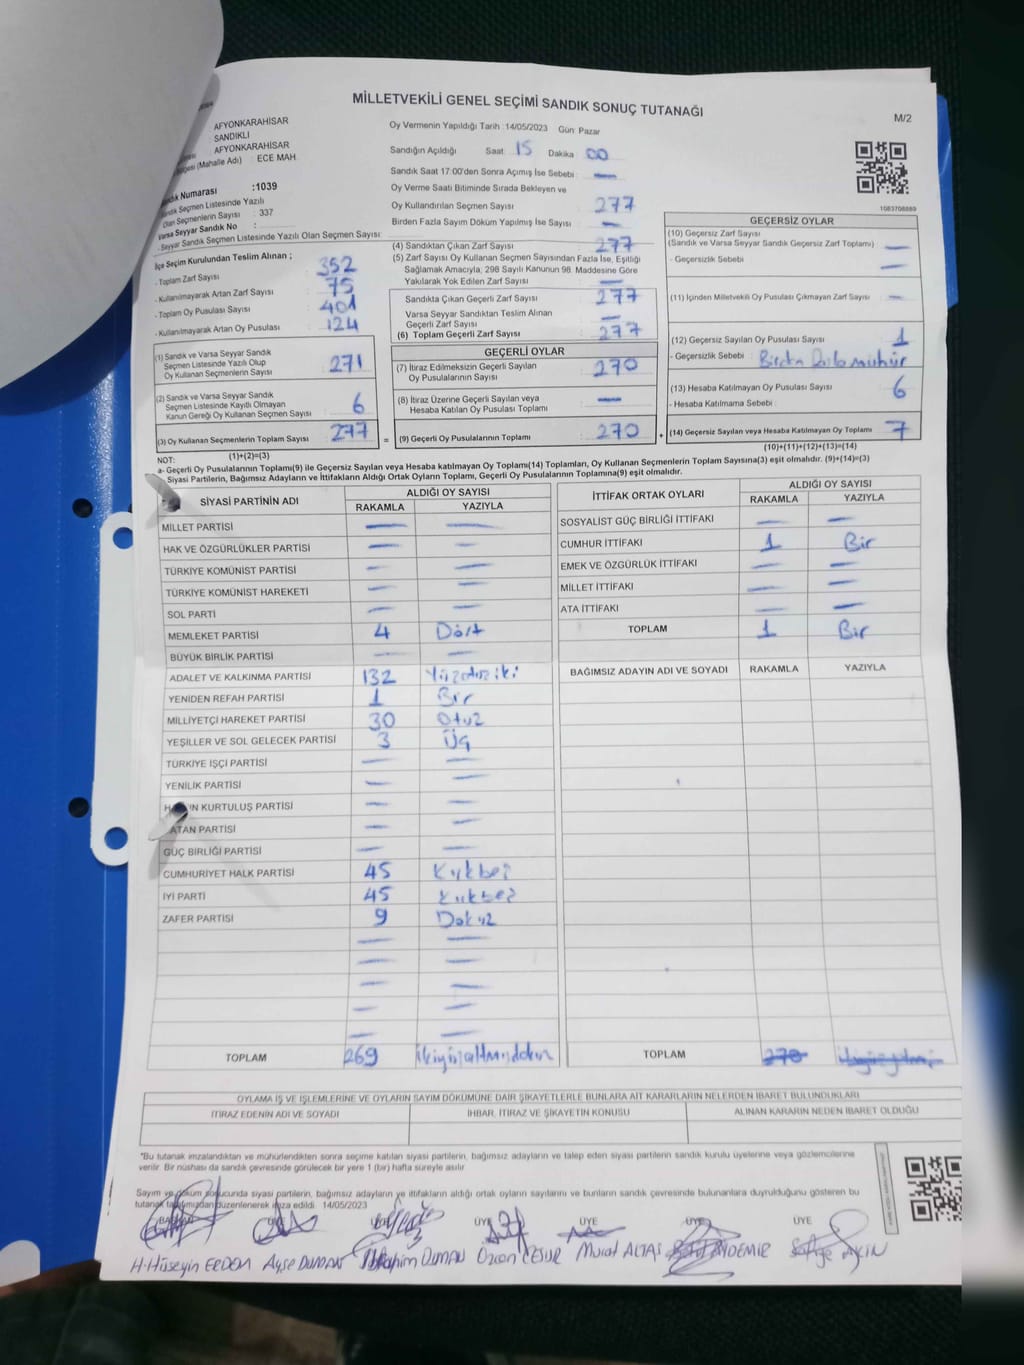 MİLLETVEKİLİ GENEL SEÇİMİ SANDIK SONUÇ TUTANAĞI
M/2
AFYONKARAHİSAR
SANDIKLI
AFYONKARAHİSAR
(Mahalle Adı) : ECE MAH
Numarası :1039
Seçmen Listesinde Yazılı
Olan Seçmenlerin Sayısı : 337
Varsa Seyyar Sandık No :
- Seyyar Sandık Seçmen Listesinde Yazılı Olan Seçmen Sayısı :
İlçe Seçim Kurulundan Teslim Alınan ;
- Toplam Zarf Sayısı : 352
- Kullanılmayarak Artan Zarf Sayısı : 75
- Toplam Oy Pusulası Sayısı : 401
- Kullanılmayarak Artan Oy Pusulası : 124
(1) Sandık ve Varsa Seyyar Sandık
Seçmen Listesinde Yazılı Olup
Oy Kullanan Seçmenlerin Sayısı : 271
(2) Sandık ve Varsa Seyyar Sandık
Seçmen Listesinde Kayıtlı Olmayan
Kanun Gereği Oy Kullanan Seçmen Sayısı : 6
(3) Oy Kullanan Seçmenlerin Toplam Sayısı : 277
(1)+(2)=(3)
Oy Vermenin Yapıldığı Tarih :14/05/2023 Gün: Pazar
Sandığın Açıldığı Saat: 15 Dakika 00
Sandık Saat 17:00'den Sonra Açılmış İse Sebebi : —
Oy Verme Saati Bitiminde Sırada Bekleyen ve
Oy Kullandırılan Seçmen Sayısı : 277
Birden Fazla Sayım Döküm Yapılmış İse Sayısı : —
(4) Sandıktan Çıkan Zarf Sayısı : 277
(5) Zarf Sayısı Oy Kullanan Seçmen Sayısından Fazla İse, Eşitliği
Sağlamak Amacıyla, 298 Sayılı Kanunun 98. Maddesine Göre
Yakılarak Yok Edilen Zarf Sayısı : —
Sandıkta Çıkan Geçerli Zarf Sayısı : 277
Varsa Seyyar Sandıktan Teslim Alınan
Geçerli Zarf Sayısı : —
(6) Toplam Geçerli Zarf Sayısı : 277
GEÇERLİ OYLAR
(7) İtiraz Edilmeksizin Geçerli Sayılan
Oy Pusulalarının Sayısı : 270
(8) İtiraz Üzerine Geçerli Sayılan veya
Hesaba Katılan Oy Pusulası Toplamı : —
= (9) Geçerli Oy Pusulalarının Toplamı : 270 +
1083708889
GEÇERSİZ OYLAR
(10) Geçersiz Zarf Sayısı
(Sandık ve Varsa Seyyar Sandık Geçersiz Zarf Toplamı) : —
- Geçersizlik Sebebi : —
(11) İçinden Milletvekili Oy Pusulası Çıkmayan Zarf Sayısı : —
(12) Geçersiz Sayılan Oy Pusulası Sayısı : 1
- Geçersizlik Sebebi : Birden mühür
(13) Hesaba Katılmayan Oy Pusulası Sayısı : 6
- Hesaba Katılmama Sebebi :
(14) Geçersiz Sayılan veya Hesaba Katılmayan Oy Pusulası Toplamı : 7
(10)+(11)+(12)+(13)=(14)
NOT:
a- Geçerli Oy Pusulalarının Toplamı(9) ile Geçersiz Sayılan veya Hesaba katılmayan Oy Toplamı(14) Toplamları, Oy Kullanan Seçmenlerin Toplam Sayısına(3) eşit olmalıdır. (9)+(14)=(3)
Siyasi Partilerin, Bağımsız Adayların ve İttifakların Aldığı Ortak Oyların Toplamı, Geçerli Oy Pusulalarının Toplamına(9) eşit olmalıdır.
SİYASİ PARTİNİN ADI ALDIĞI OY SAYISI
RAKAMLA YAZIYLA
MİLLET PARTİSİ — —
HAK VE ÖZGÜRLÜKLER PARTİSİ — —
TÜRKİYE KOMÜNİST PARTİSİ — —
TÜRKİYE KOMÜNİST HAREKETİ — —
SOL PARTİ — —
MEMLEKET PARTİSİ 4 Dört
BÜYÜK BİRLİK PARTİSİ — —
ADALET VE KALKINMA PARTİSİ 132 Yüzotuziki
YENİDEN REFAH PARTİSİ 1 Bir
MİLLİYETÇİ HAREKET PARTİSİ 30 Otuz
YEŞİLLER VE SOL GELECEK PARTİSİ 3 Üç
TÜRKİYE İŞÇİ PARTİSİ — —
YENİLİK PARTİSİ — —
KURTULUŞ PARTİSİ — —
ATAN PARTİSİ — —
GÜÇ BİRLİĞİ PARTİSİ — —
CUMHURİYET HALK PARTİSİ 45 Kırkbeş
İYİ PARTİ 45 Kırkbeş
ZAFER PARTİSİ 9 Dokuz
— —
— —
— —
— —
— —
TOPLAM 269 ikiyüzaltmışdokuz
İTTİFAK ORTAK OYLARI ALDIĞI OY SAYISI
RAKAMLA YAZIYLA
SOSYALİST GÜÇ BİRLİĞİ İTTİFAKI — —
CUMHUR İTTİFAKI 1 Bir
EMEK VE ÖZGÜRLÜK İTTİFAKI — —
MİLLET İTTİFAKI — —
ATA İTTİFAKI — —
TOPLAM 1 Bir
BAĞIMSIZ ADAYIN ADI VE SOYADI RAKAMLA YAZIYLA
TOPLAM 270
OYLAMA İŞ VE İŞLEMLERİNE VE OYLARIN SAYIM DÖKÜMÜNE DAİR ŞİKAYETLERLE BUNLARA AİT KARARLARIN NELERDEN İBARET BULUNDUKLARI
İTİRAZ EDENİN ADI VE SOYADI İHBAR, İTİRAZ VE ŞİKAYETİN KONUSU ALINAN KARARIN NEDEN İBARET OLDUĞU
*Bu tutanak imzalandıktan ve mühürlendikten sonra seçime katılan siyasi partilerin, bağımsız adayların ve talep eden siyasi partilerin sandık kurulu üyelerine veya gözlemcilerine
verilir. Bir nüshası da sandık çevresinde görülecek bir yere 1 (bir) hafta süreyle asılır.
Sayım ve döküm sonucunda siyasi partilerin, bağımsız adayların ve ittifakların aldığı ortak oyların sayılarını ve bunların sandık çevresinde bulunanlara duyrulduğunu gösteren bu
tutanak tarafımızdan düzenlenerek imza edildi. 14/05/2023
BAŞKAN ÜYE ÜYE ÜYE ÜYE ÜYE
H.Hüseyin ERDEN Ayşe DUMAN İbrahim DUMAN Özcan CESUR Murat ALTAŞ AYDEMİR AKIN